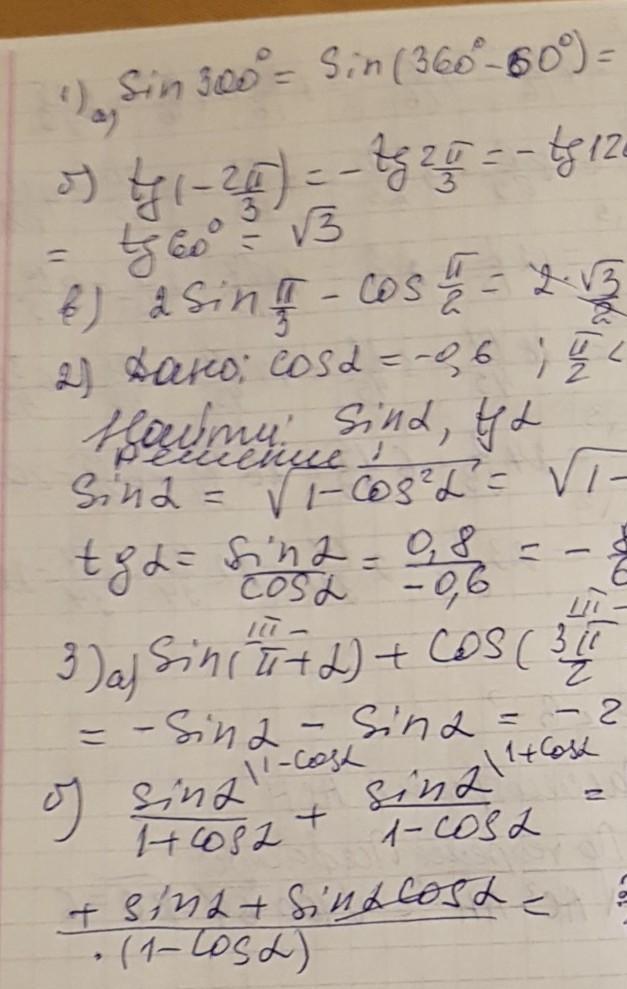 1) а) Sin 300° = Sin(360° - 60°) =
б) tg(-2π/3) = -tg 2π/3 = -tg 12
= tg 60° = √3
в) 2 Sin π/3 - cos π/2 = 2·√3/2
2) Дано: cos α = -0,6 ; π/2 <
Найти: Sin α, tg α
Решение:
Sin α = √1-cos²α = √1-
tg α = sin α/cos α = 0,8/-0,6 = - 8/6
3) а) Sin(π+α) + cos(3π/2
III - III -
= -Sin α - Sin α = -2
б) sin α/1+cos α \1-cos α + sin α/1-cos α \1+cos α =
+ sin α + Sin α cos α/·(1-cos α) =